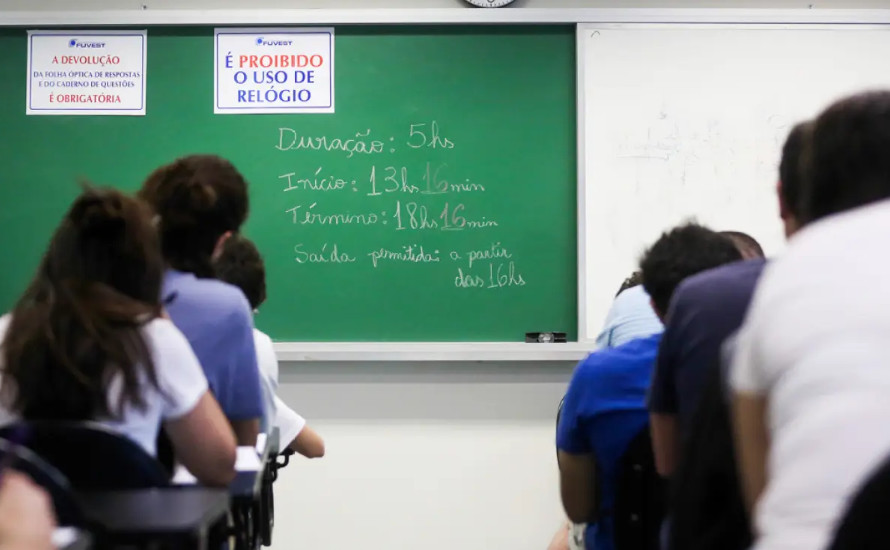 FUVEST
A DEVOLUÇÃO
DA FOLHA ÓPTICA DE RESPOSTAS
E DO CADERNO DE QUESTÕES
É OBRIGATÓRIA
FUVEST
É PROIBIDO
O USO DE
RELÓGIO
Duração: 5hs
Início: 13hs 16min
Término: 18hs 16min
Saída permitida: a partir
das 16hs